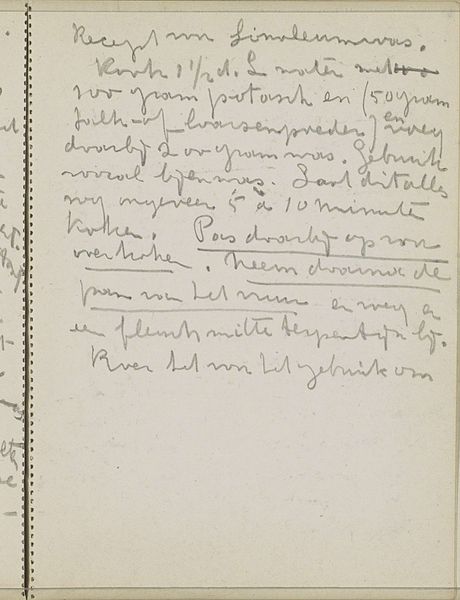 Recept van Linoleumwas.
Kook 1 1/2 d. L water met
100 gram potasch en (50 gram
talk- of laarsenpoeder) en voeg
daarbij 200 gram was. Gebruik
vooral bijenwas. Laat dit alles
nog ongeveer 5 à 10 minuten
koken. Pas daarbij op van
overkoken. Neem daarna de
pan van het vuur en voeg er
een flesch witte terpentijn bij.
Roer het van het gebruik om